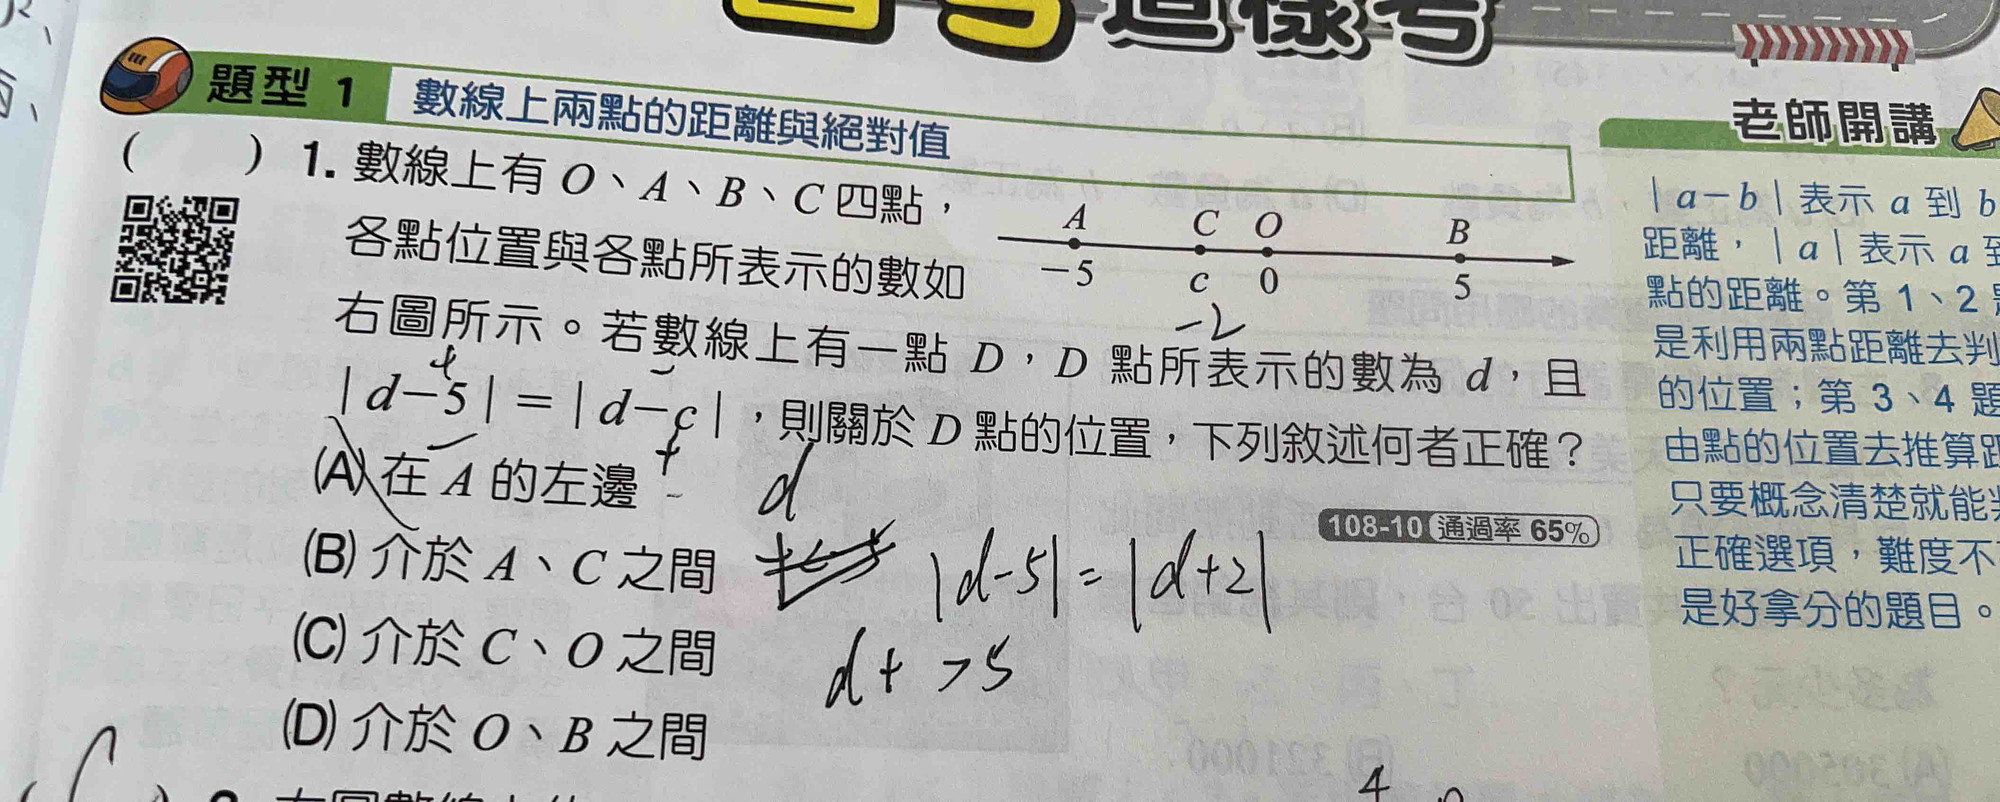 這樣考
題型 1 數線上兩點的距離與絕對值
( ) 1. 數線上有 O、A、B、C 四點，
各點位置與各點所表示的數如
右圖所示。若數線上有一點 D，D 點所表示的數為 d，且
|d－5|＝|d－c|，則關於 D 點的位置，下列敘述何者正確？
(A) 在 A 的左邊
108-10 通過率 65%
(B) 介於 A、C 之間
(C) 介於 C、O 之間
(D) 介於 O、B 之間
A C O B
－5 c 0 5
－2
d
|d-5| = |d+2|
d+ >5
4
老師開講
|a－b| 表示 a 到 b
距離，|a| 表示 a
點的距離。第 1、2
是利用兩點距離去判
的位置；第 3、4 題
由點的位置去推算距
只要概念清楚就能
正確選項，難度不
是好拿分的題目。